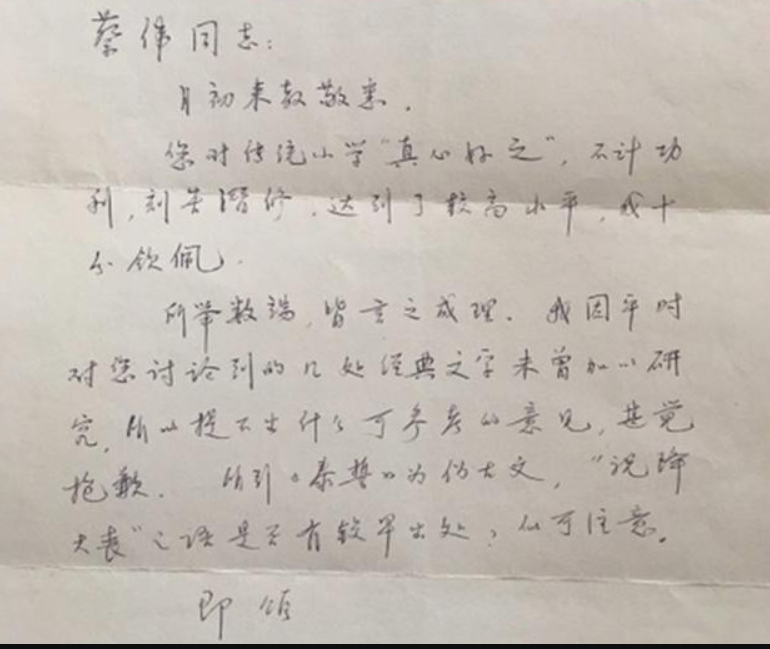 蔡伟同志：
月初来教敬悉．
您对传统小学“真心好之”，不计功
利，刻苦潜修，达到了较高水平，我十
分钦佩．
所举数端，皆言之成理．我因平时
对您讨论到的几处经典文字未曾加以研
究，所以提不出什么可参考的意见，甚觉
抱歉．所引《泰誓》为伪古文，“祝降
大丧”之语是否有较早出处，似可注意。
即颂